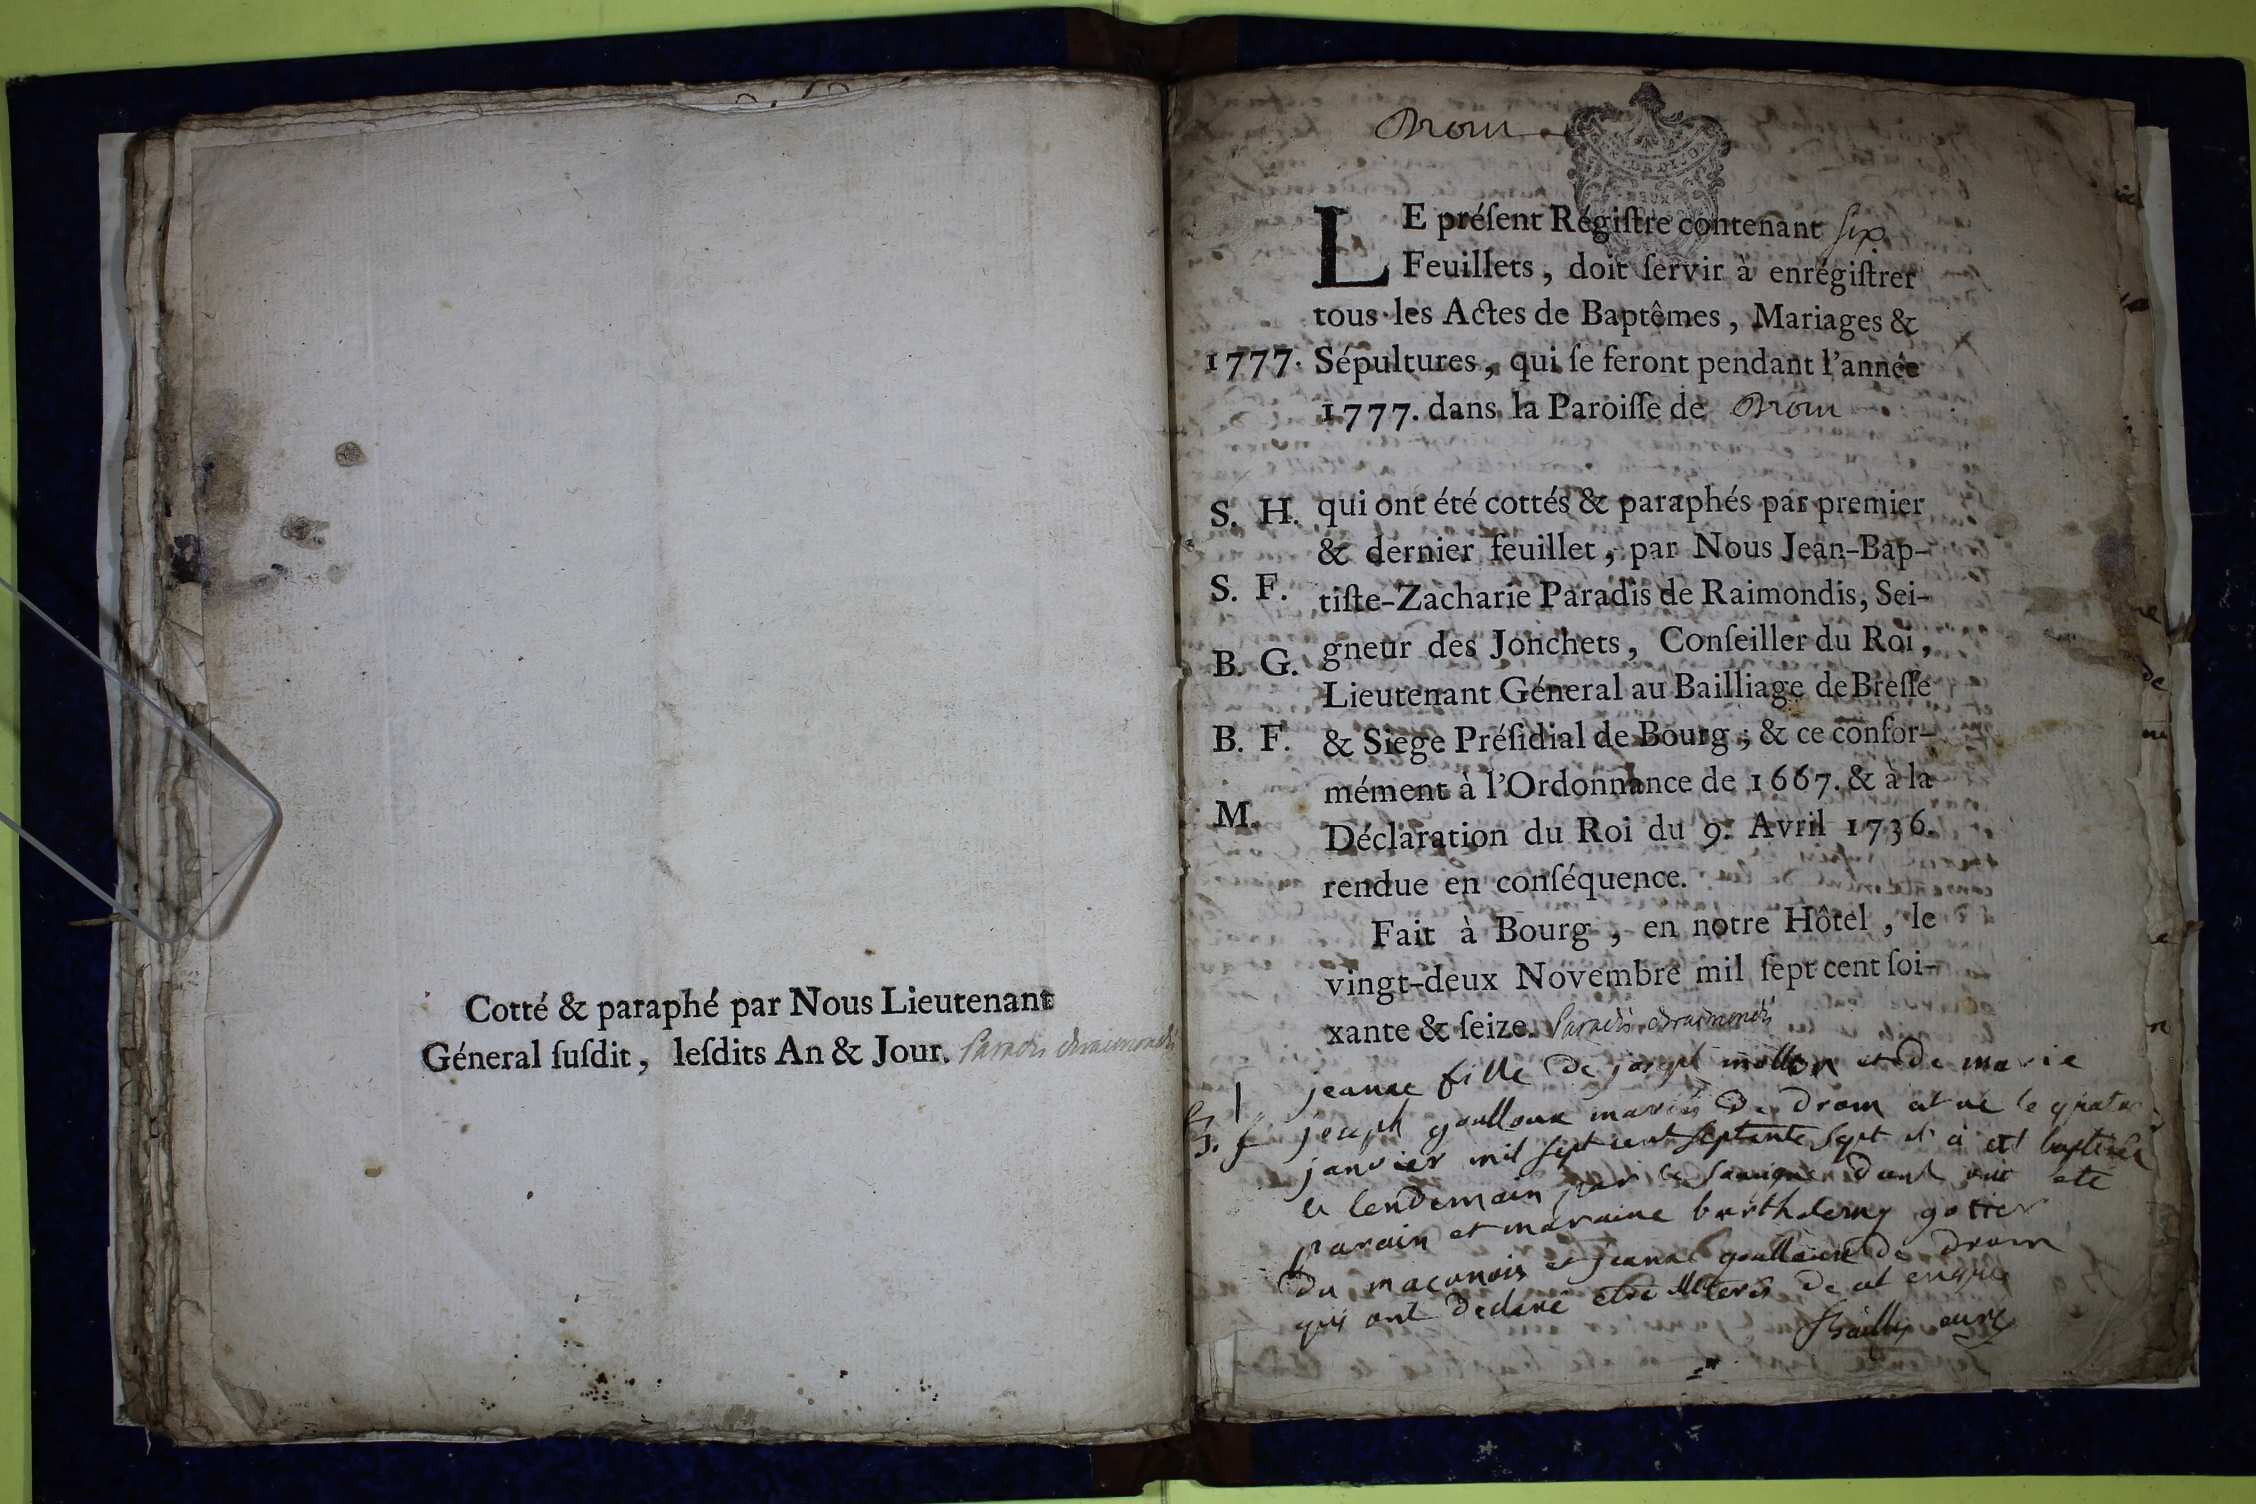 Cotté & paraphé par Nous Lieutenant
Géneral ſuſdit, leſdits An & Jour. Paradis deraimondis
Drom
LE préſent Régiſtre contenant six
Feuillets, doit ſervir à enrégiſtrer
tous les Actes de Baptêmes, Mariages &
1777. Sépultures, qui ſe feront pendant l'année
1777. dans la Paroiſſe de Drom
S. H. qui ont été cottés & paraphés par premier
& dernier feuillet, par Nous Jean-Bap-
S. F. tiſte-Zacharie Paradis de Raimondis, Sei-
gneur des Jonchets, Conſeiller du Roi,
B. G. Lieutenant Géneral au Bailliage de Breſſe
B. F. & Siege Préſidial de Bourg ; & ce confor-
mément à l'Ordonnance de 1667. & à la
M. Déclaration du Roi du 9. Avril 1736.
rendue en conſéquence.
Fait à Bourg, en notre Hôtel, le
vingt-deux Novembre mil ſept cent ſoi-
xante & ſeize. Paradis deraimondis
1 jeanne fille de joseph mollon et de marie
joseph goulloux mariés de drom et né le
janvier mil sept cent septante sept et a eté baptisée
le lendemain par le dont ont eté
parain et maraine barthelemy gottier
du maconois et jeanne de drom
qui ont declaré etre de cet enquis
Bailly curé